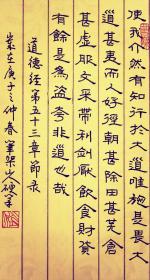 使我介然有知行於大道唯施是畏大
道甚夷而人好徑朝甚除田甚蕪倉
甚虛服文采帶利劍厭飲食財貨
有餘是為盜夸非道也哉
道德經第五十三章節录
歲在庚子之仲春筆架山人